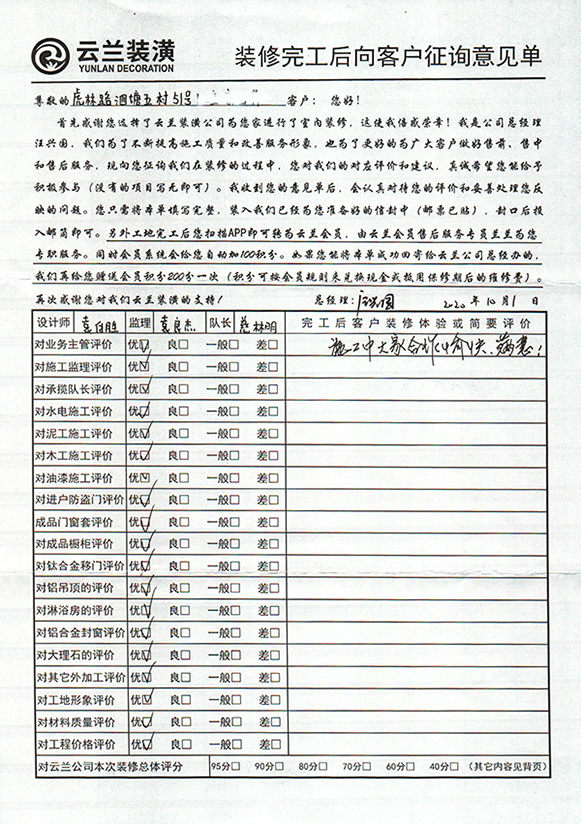 云兰装潢
YUNLAN DECORATION
装修完工后向客户征询意见单
尊敬的虎林路泗塘五村51号 客户：您好！
首先感谢您选择了云兰装潢公司为您家进行了室内装修，这使我倍感荣幸！我是公司总经理
汪兴国，我们为了不断提高施工质量和改善服务形象，也为了更好的为广大客户做好售前、售中
和售后服务，现向您征询我们在装修的过程中，您对我们的对应评价和建议，真诚希望您能给予
积极参与（没有的项目写无即可）。我收到您的意见单后，会认真对待您的评价和妥善处理您反
映的问题。您只需将本单填写完整，装入我们已经为您准备好的信封中（邮票已贴），封口后投
入邮筒即可。另外工地完工后您扫描APP即可转为云兰会员，由云兰会员售后服务专员兰兰为您
专职服务。同时会员系统会给您自动加100积分。如果您能将本单成功回寄给云兰公司总经办的，
我们再给您赠送会员积分200分一次（积分可按会员规则来兑换现金或抵用保修期后的维修费）。
再次感谢您对我们云兰装潢的支持！ 总经理： 2020年10月1日
设计师 袁伯胜 监理 袁良杰 队长 林明 完工后客户装修体验或简要评价
对业务主管评价 优☑ 良□ 一般□ 差□ 施工中大家合作愉快、满意！
对施工监理评价 优☑ 良□ 一般□ 差□
对承揽队长评价 优☑ 良□ 一般□ 差□
对水电施工评价 优☑ 良□ 一般□ 差□
对泥工施工评价 优☑ 良□ 一般□ 差□
对木工施工评价 优☑ 良□ 一般□ 差□
对油漆施工评价 优☑ 良□ 一般□ 差□
对进户防盗门评价 优☑ 良□ 一般□ 差□
成品门窗套评价 优☑ 良□ 一般□ 差□
对成品橱柜评价 优☑ 良□ 一般□ 差□
对钛合金移门评价 优☑ 良□ 一般□ 差□
对铝吊顶的评价 优☑ 良□ 一般□ 差□
对淋浴房的评价 优☑ 良□ 一般□ 差□
对铝合金封窗评价 优☑ 良□ 一般□ 差□
对大理石的评价 优☑ 良□ 一般□ 差□
对其它外加工评价 优☑ 良□ 一般□ 差□
对工地形象评价 优☑ 良□ 一般□ 差□
对材料质量评价 优☑ 良□ 一般□ 差□
对工程价格评价 优☑ 良□ 一般□ 差□
对云兰公司本次装修总体评分 95分□ 90分□ 80分□ 70分□ 60分□ 40分□ （其它内容见背页）